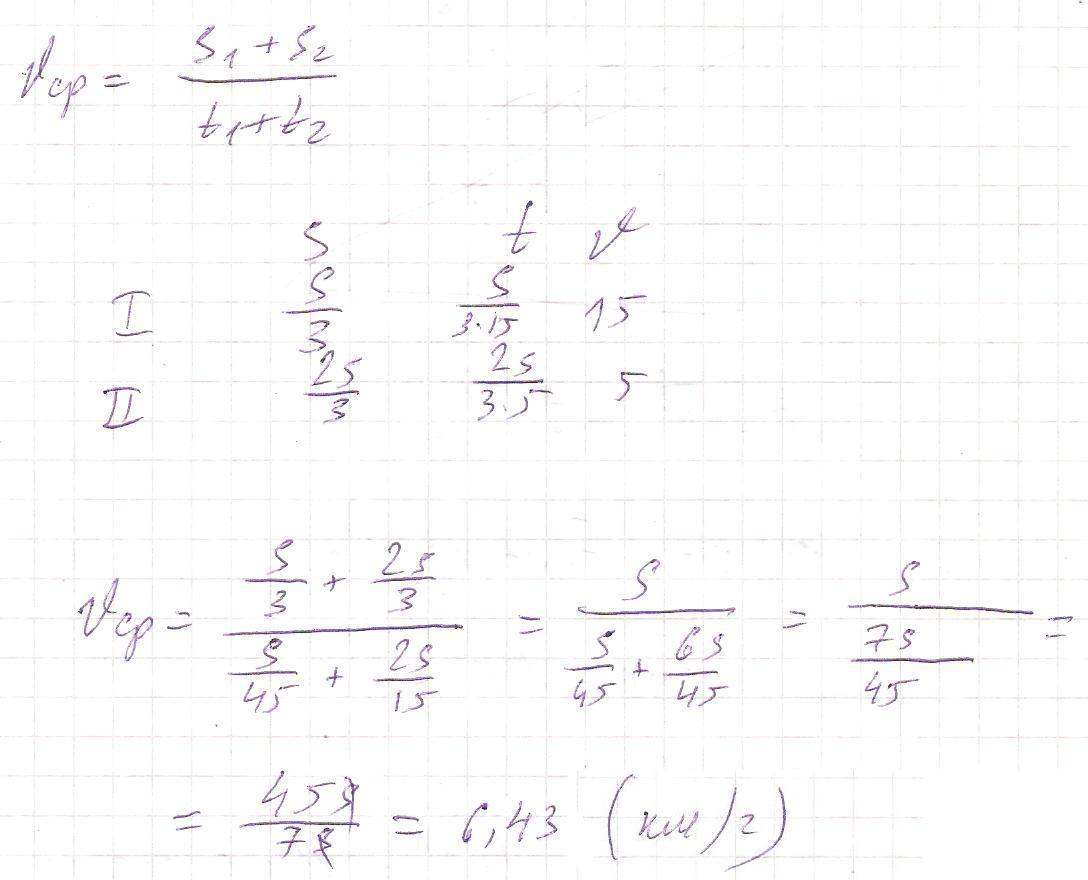 vср = (s₁ + s₂)/(t₁ + t₂)
s t v
I s/3 s/(3·15) 15
II 2s/3 2s/(3·5) 5
vср = (s/3 + 2s/3)/(s/45 + 2s/15) = s/(s/45 + 6s/45) = s/(7s/45) =
= 45s/7s = 6,43 (км/ч)